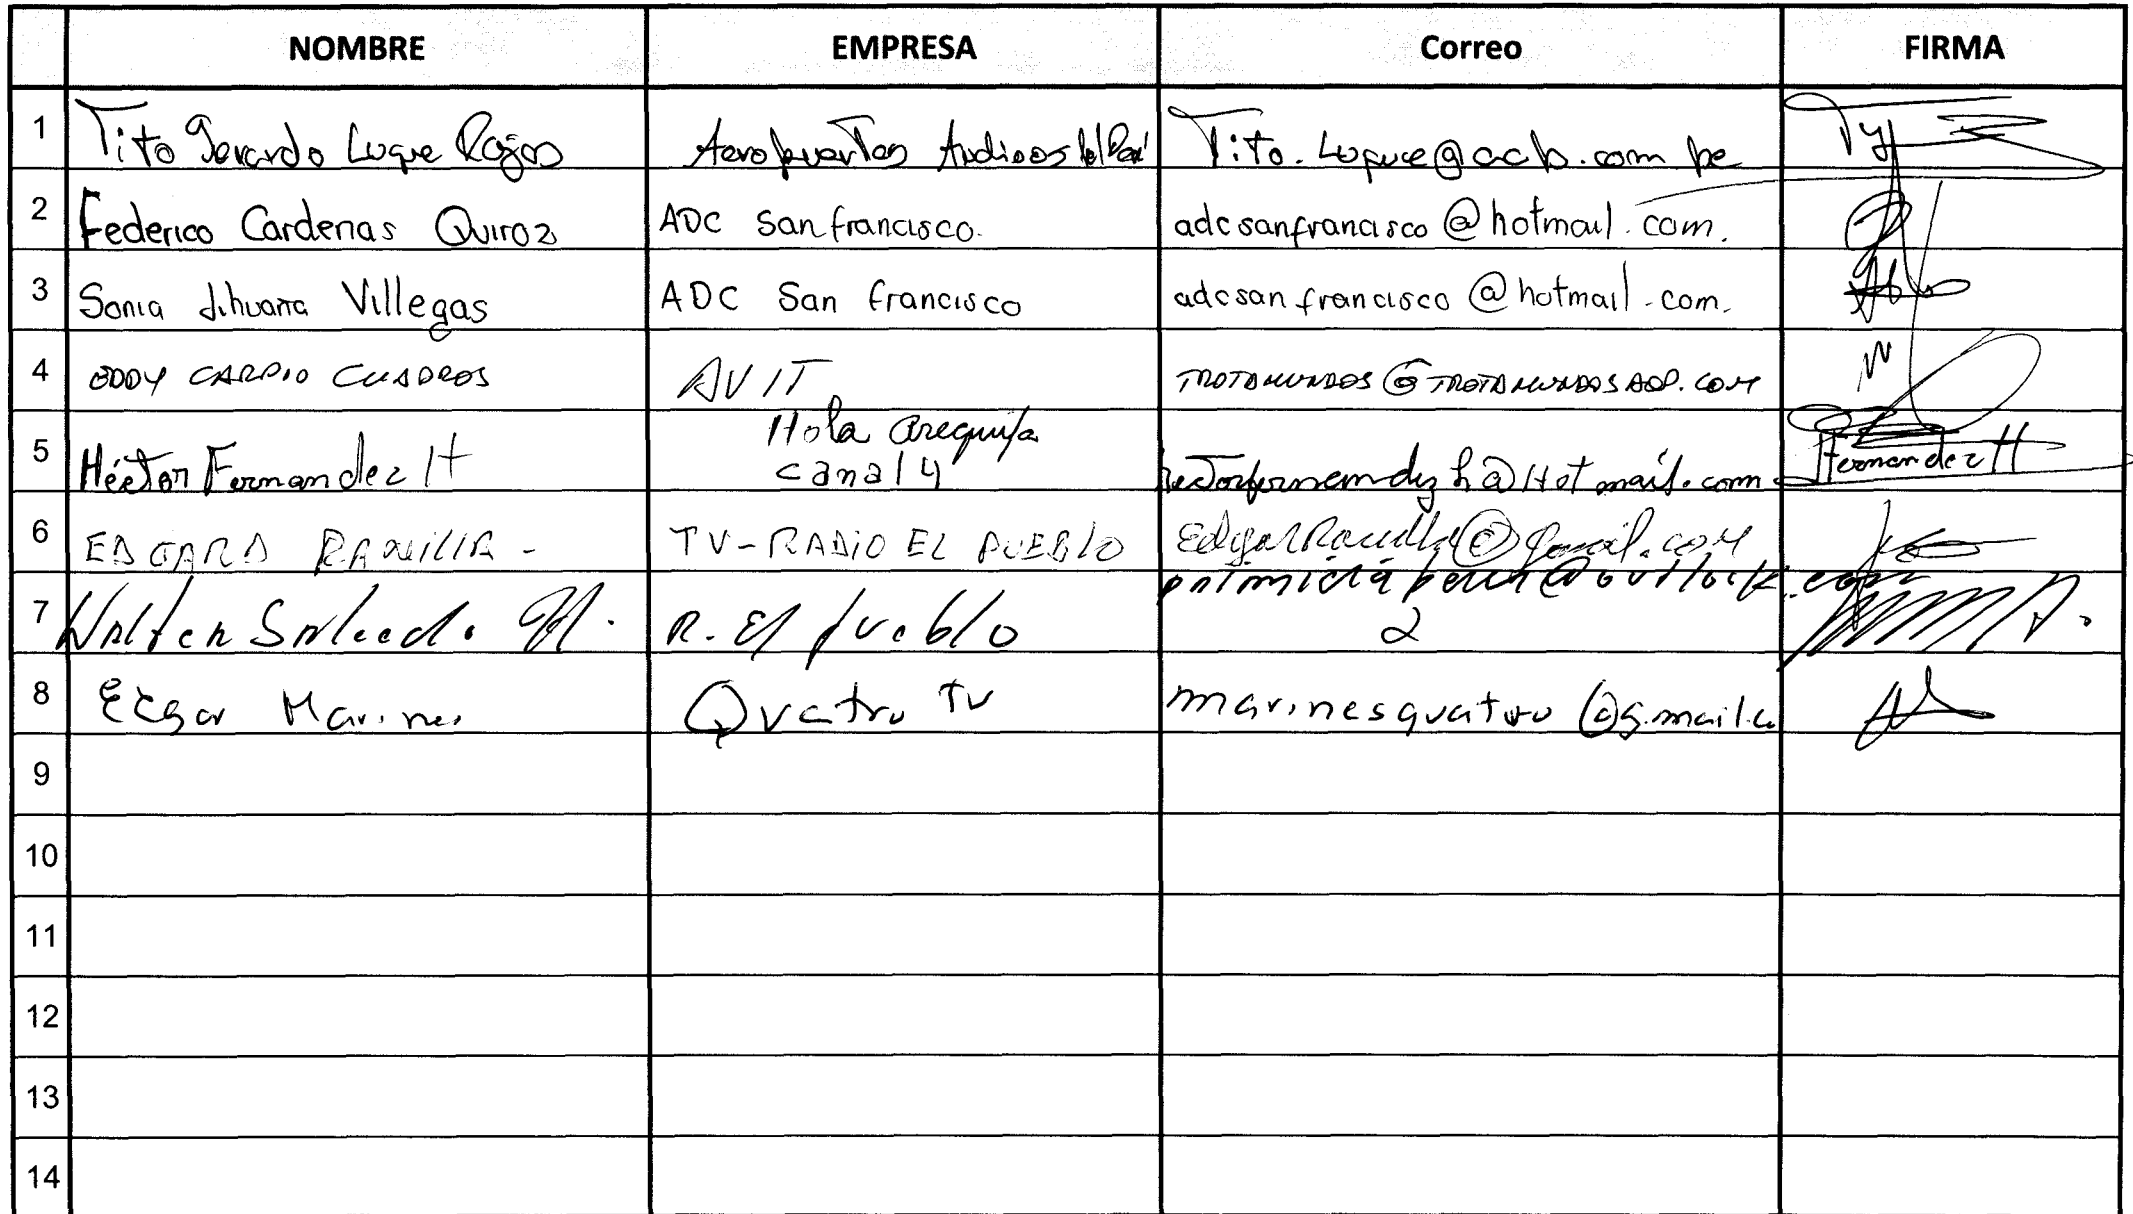 NOMBRE EMPRESA Correo FIRMA
1 Tito Gerardo Luque Rojas Aeropuertos Andinos del Perú Tito.Luque@aap.com.pe
2 Federico Cardenas Quiroz ADC San francisco. adcsanfrancisco@hotmail.com.
3 Sonia Villegas ADC San francisco adcsanfrancisco@hotmail.com.
4 EDDY CARPIO CUADROS AVIT TROTAMUNDOS@TROTAMUNDOSAQP.COM
Hola Arequipa
5 Héctor Fernandez H canal 4 @Hotmail.com Fernandez H
6 EDGARD RAMILLA - TV-RADIO EL PUEBLO
7 Walter Salcedo R. El pueblo 2
8 Edgar Marines Quatro TV marinesquatro@gmail.co
9
10
11
12
13
14